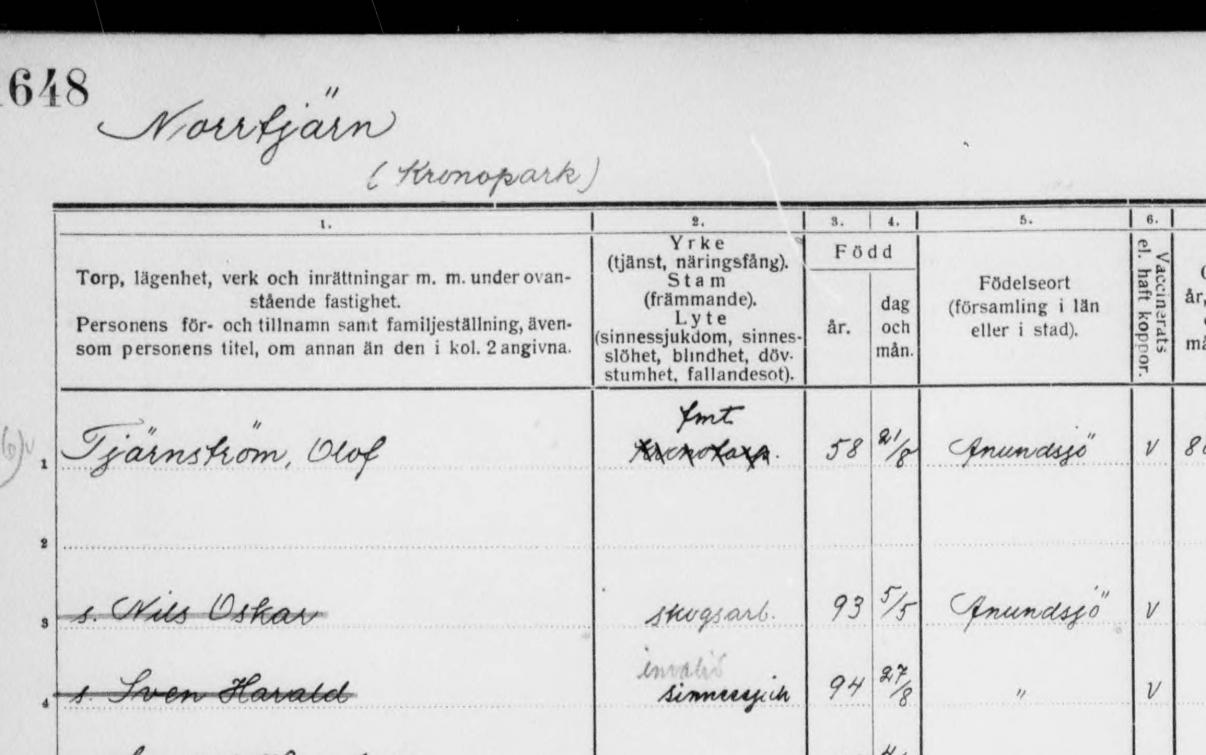 1648
Norrtjärn
(Kronopark)
1. 2. 3. 4. 5. 6.
Torp, lägenhet, verk och inrättningar m. m. under ovan-
stående fastighet.
Personens för- och tillnamn samt familjeställning, även-
som personens titel, om annan än den i kol. 2 angivna.
Yrke
(tjänst, näringsfång).
Stam
(främmande).
Lyte
(sinnessjukdom, sinnes-
slöhet, blindhet, döv-
stumhet, fallandesot).
Född
år.
dag
och
mån.
Födelseort
(församling i län
eller i stad).
Vaccinerats
el. haft koppor.
år,
må
fmt
1 Tjärnström, Olof Kronotorp. 58 21/8 Anundsjö v
2
3 s. Nils Oskar skogsarb. 93 5/5 Anundsjö v
invalid
4 s. Sven Harald sinnessjuk 94 27/8 " v